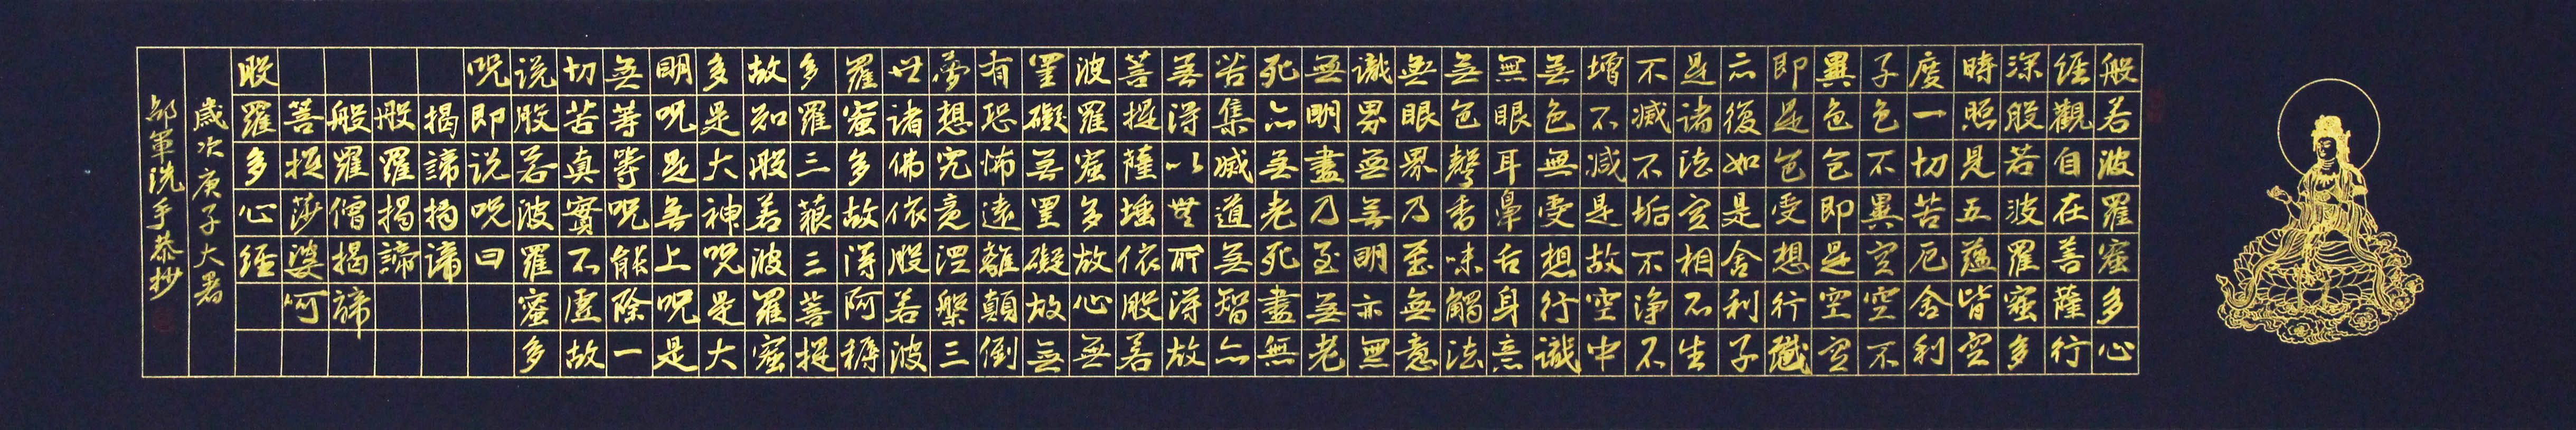 般若波羅蜜多心
經觀自在菩薩行
深般若波羅蜜多
時照見五蘊皆空
度一切苦厄舍利
子色不異空空不
異色色即是空空
即是色受想行識
亦復如是舍利子
是諸法空相不生
不滅不垢不净不
增不减是故空中
無色無受想行識
無眼耳鼻舌身意
無色聲香味觸法
無眼界乃至無意
識界無無明亦無
無明盡乃至無老
死亦無老死盡無
苦集滅道無智亦
無得以無所得故
菩提薩埵依般若
波羅蜜多故心無
罣礙無罣礙故無
有恐怖遠離顛倒
夢想究竟涅槃三
世諸佛依般若波
羅蜜多故得阿耨
多羅三藐三菩提
故知般若波羅蜜
多是大神咒是大
明咒是無上咒是
無等等咒能除一
切苦真實不虛故
说般若波羅蜜多
咒即说咒曰
揭諦揭諦
般羅揭諦
般羅僧揭諦
菩提莎婆呵
般羅多心經
歲次庚子大暑
軍洗手恭抄